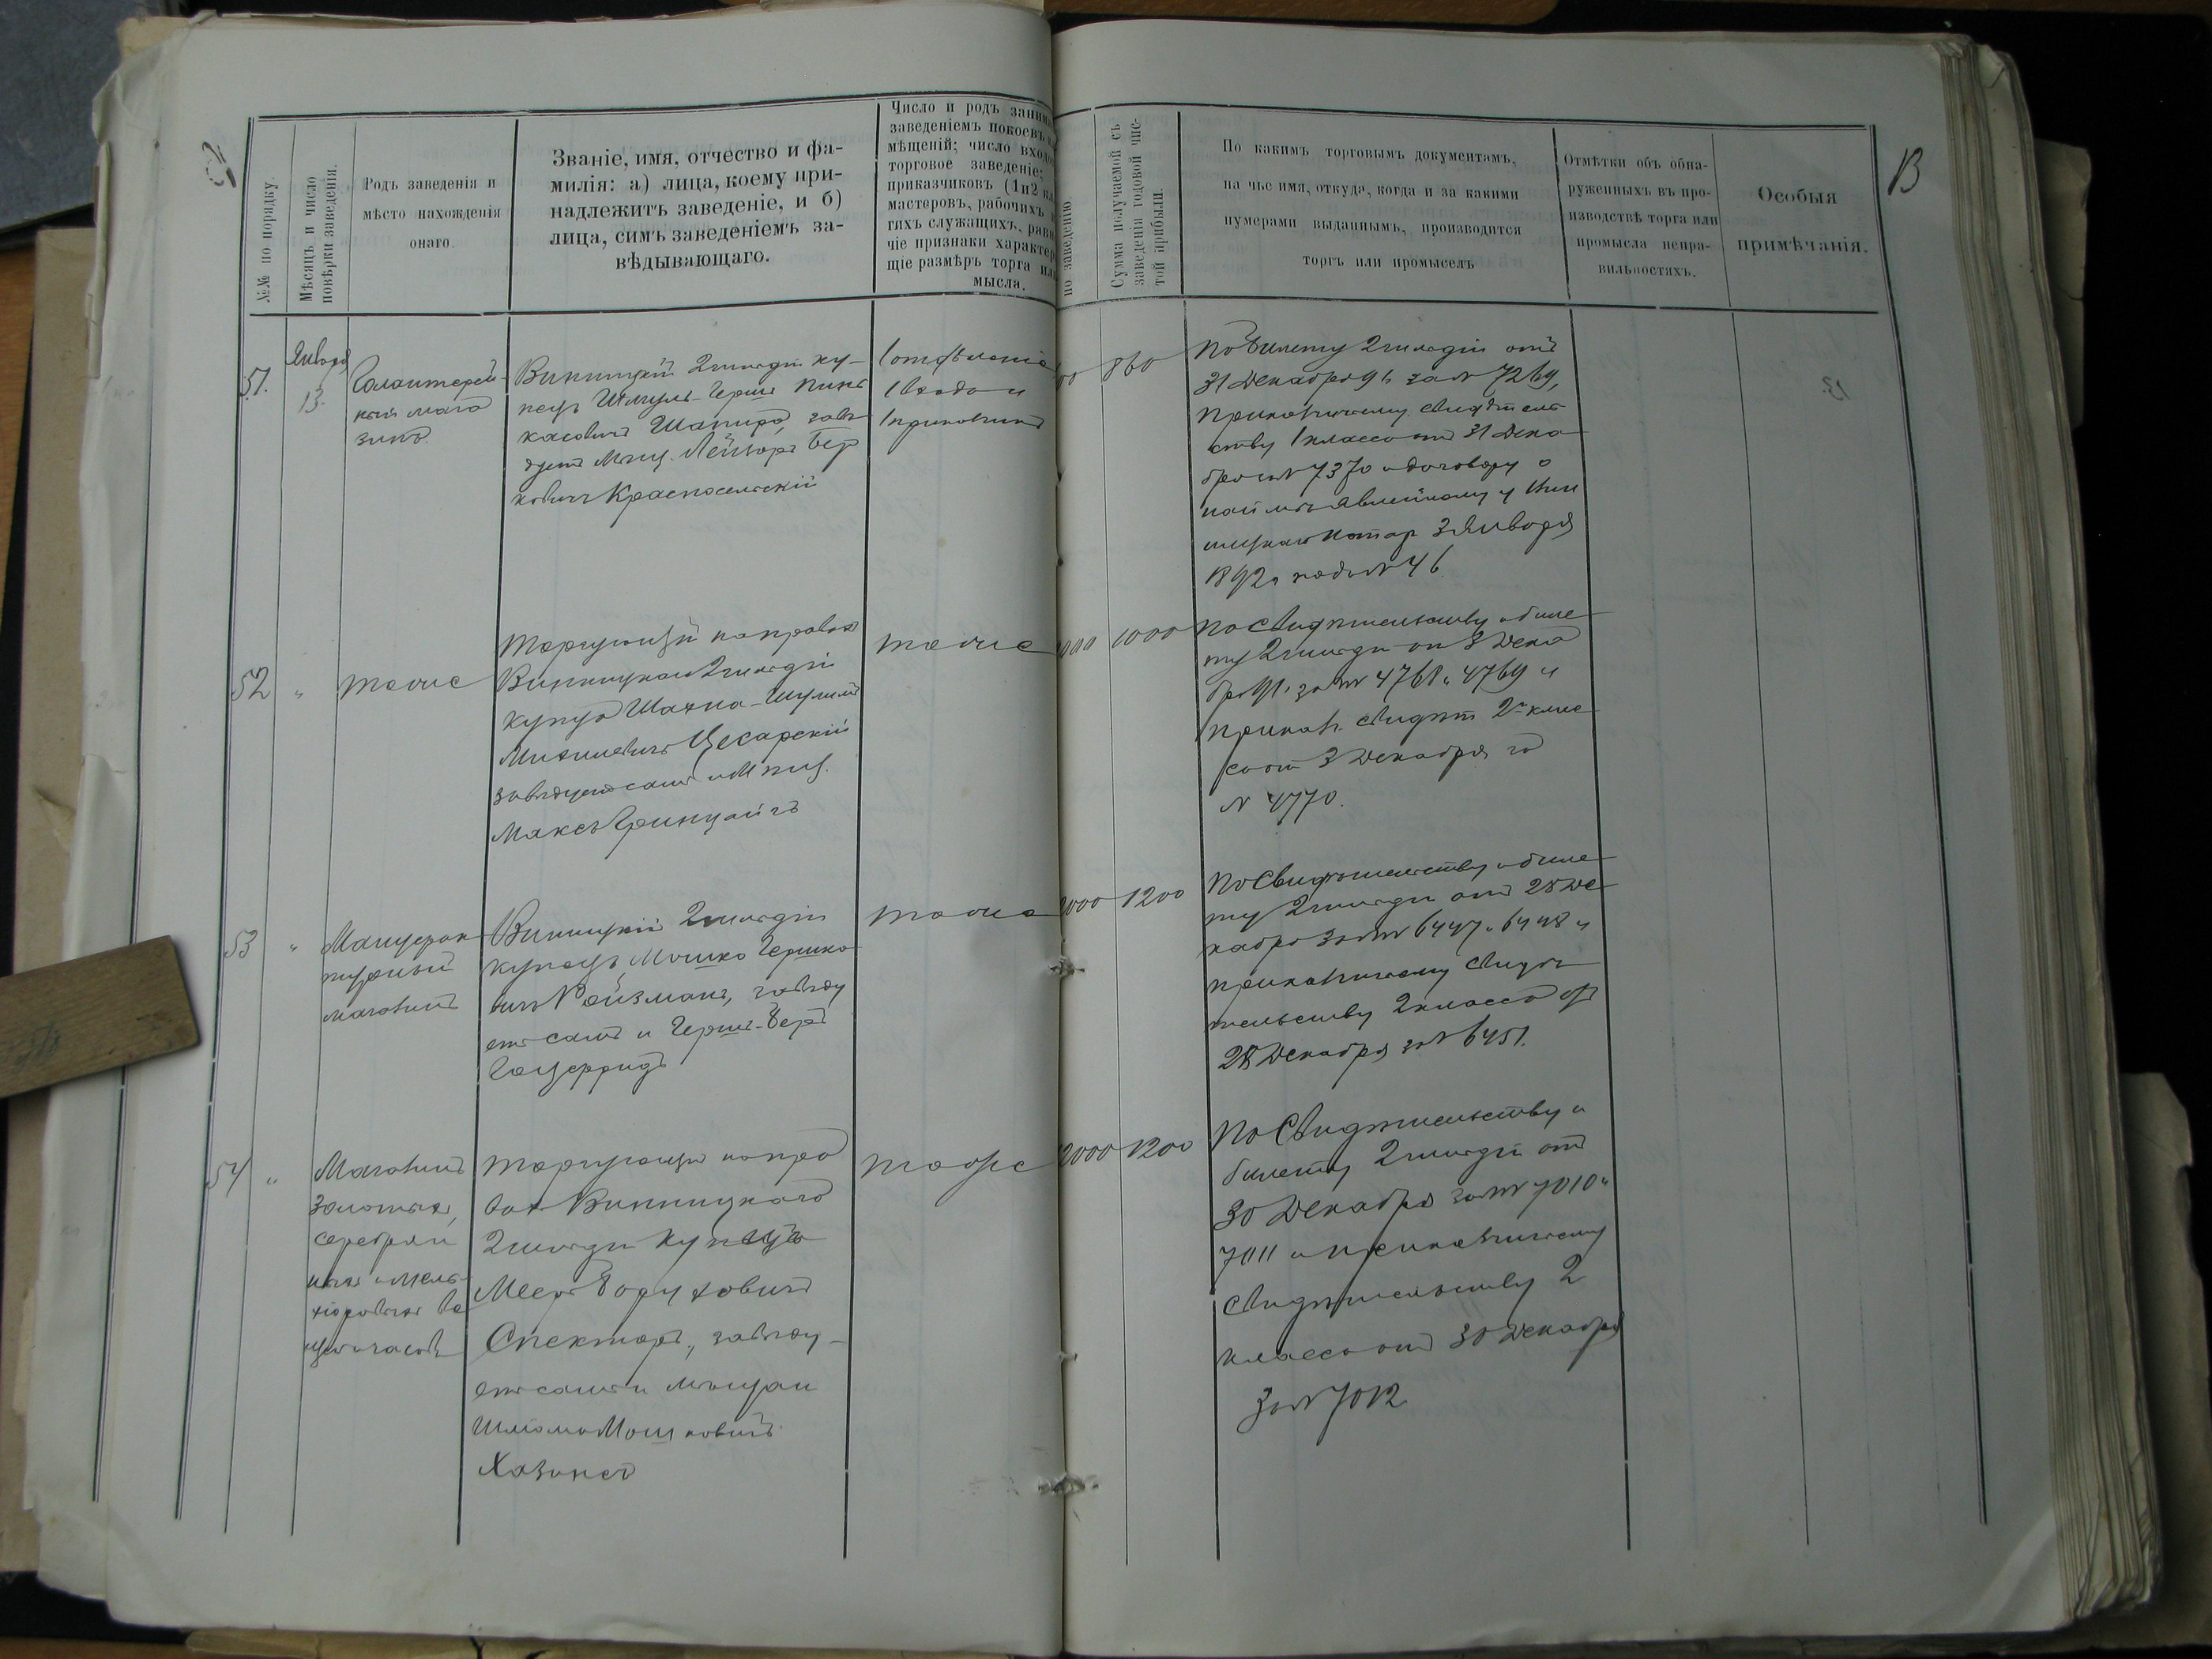 13
№№ по порядку.
Мѣсяцъ и число
повѣрки заведенія.
Родъ заведенія и
мѣсто нахожденія
онаго.
Званіе, имя, отчество и фа-
милія: а) лица, коему при-
надлежитъ заведеніе, и б)
лица, симъ заведеніемъ за-
вѣдывающаго.
Число и родъ заним
заведеніемъ покоевъ
мѣщеній; число входо
торговое заведеніе;
приказчиковъ (1 и 2 кл
мастеровъ, рабочихъ
гихъ служащихъ, равн
чіе признаки характер
щіе размѣръ торга или
мысла.
по заведенію
Сумма получаемой съ
заведенія годовой чис-
той прибыли.
По какимъ торговымъ документамъ,
на чье имя, откуда, когда и за какими
нумерами выданнымъ, производится
торгъ или промыселъ
Отмѣтки объ обна-
руженныхъ въ про-
изводствѣ торга или
промысла непра-
вильностяхъ.
Особыя
примѣчанія.
51.
Января
13.
Галантерей-
ный мага
зинъ
Винницкій 2 гильдіи ку-
пецъ Шмуль-Герш Пинь
касовичъ Шапиро, завѣ
дуетъ Мѣщ. Лейзоръ Бер
ковичъ Красносельскій
1 отдѣленіе
1 входъ и
1 прикащикъ
00
860
По билету 2 гильдіи отъ
31 Декабря 91 за № 7269,
Прикащичьему свидѣтель
ству 1 класса отъ 31 Дека
бря за № 7370 и договору о
наймѣ явленному у Вин
ницкаго Нотар 3 Января
1892 г подъ № 46
52
"
тоже
Торгующій на правахъ
Винницкаго 2 гильдіи
купца Шахна-Шулимъ
Михилевичъ Цесарскій
завѣдуетъ самъ и Мѣщ.
Максъ Гринцайгъ
тоже
000
1000
По Свидѣтельству и биле
ту 2 гильдіи отъ 3 Дека
бря 91 г за №№ 4768 и 4769 и
приказ. свидѣт 2 г клас
са отъ 3 Декабря за
№ 4770.
53
"
Мануфак
турный
магазинъ
Винницкій 2 гильдіи
купецъ Мошко Гершко
вичъ Ройзманъ, завѣду
етъ самъ и Гершъ-Беръ
Гоцфридъ
тоже
000
1200
По Свидѣтельству и биле
ту 2 гильдіи отъ 28 Де
кабря за №№ 6447 и 6448 и
приказчичьему свидѣ
тельству 2 класса отъ
28 Декабря за № 6451.
54
"
Магазинъ
золотыхъ,
серебрян
ныхъ и мель
хіоровыхъ ве
щей и часовъ
Торгующій на пра
вахъ Винницкаго
2 гильдіи купца
Меер Борухович
Спекторъ, завѣду-
етъ самъ и мѣщан
Шліома Мошковичъ
Хазинъ
тоже
12000
1200
По Свидѣтельству и
билету 2 гильдіи отъ
30 Декабря за №№ 7010 и
7011 и приказчичьему
свидѣтельству 2
класса отъ 30 Декабря
за № 7012